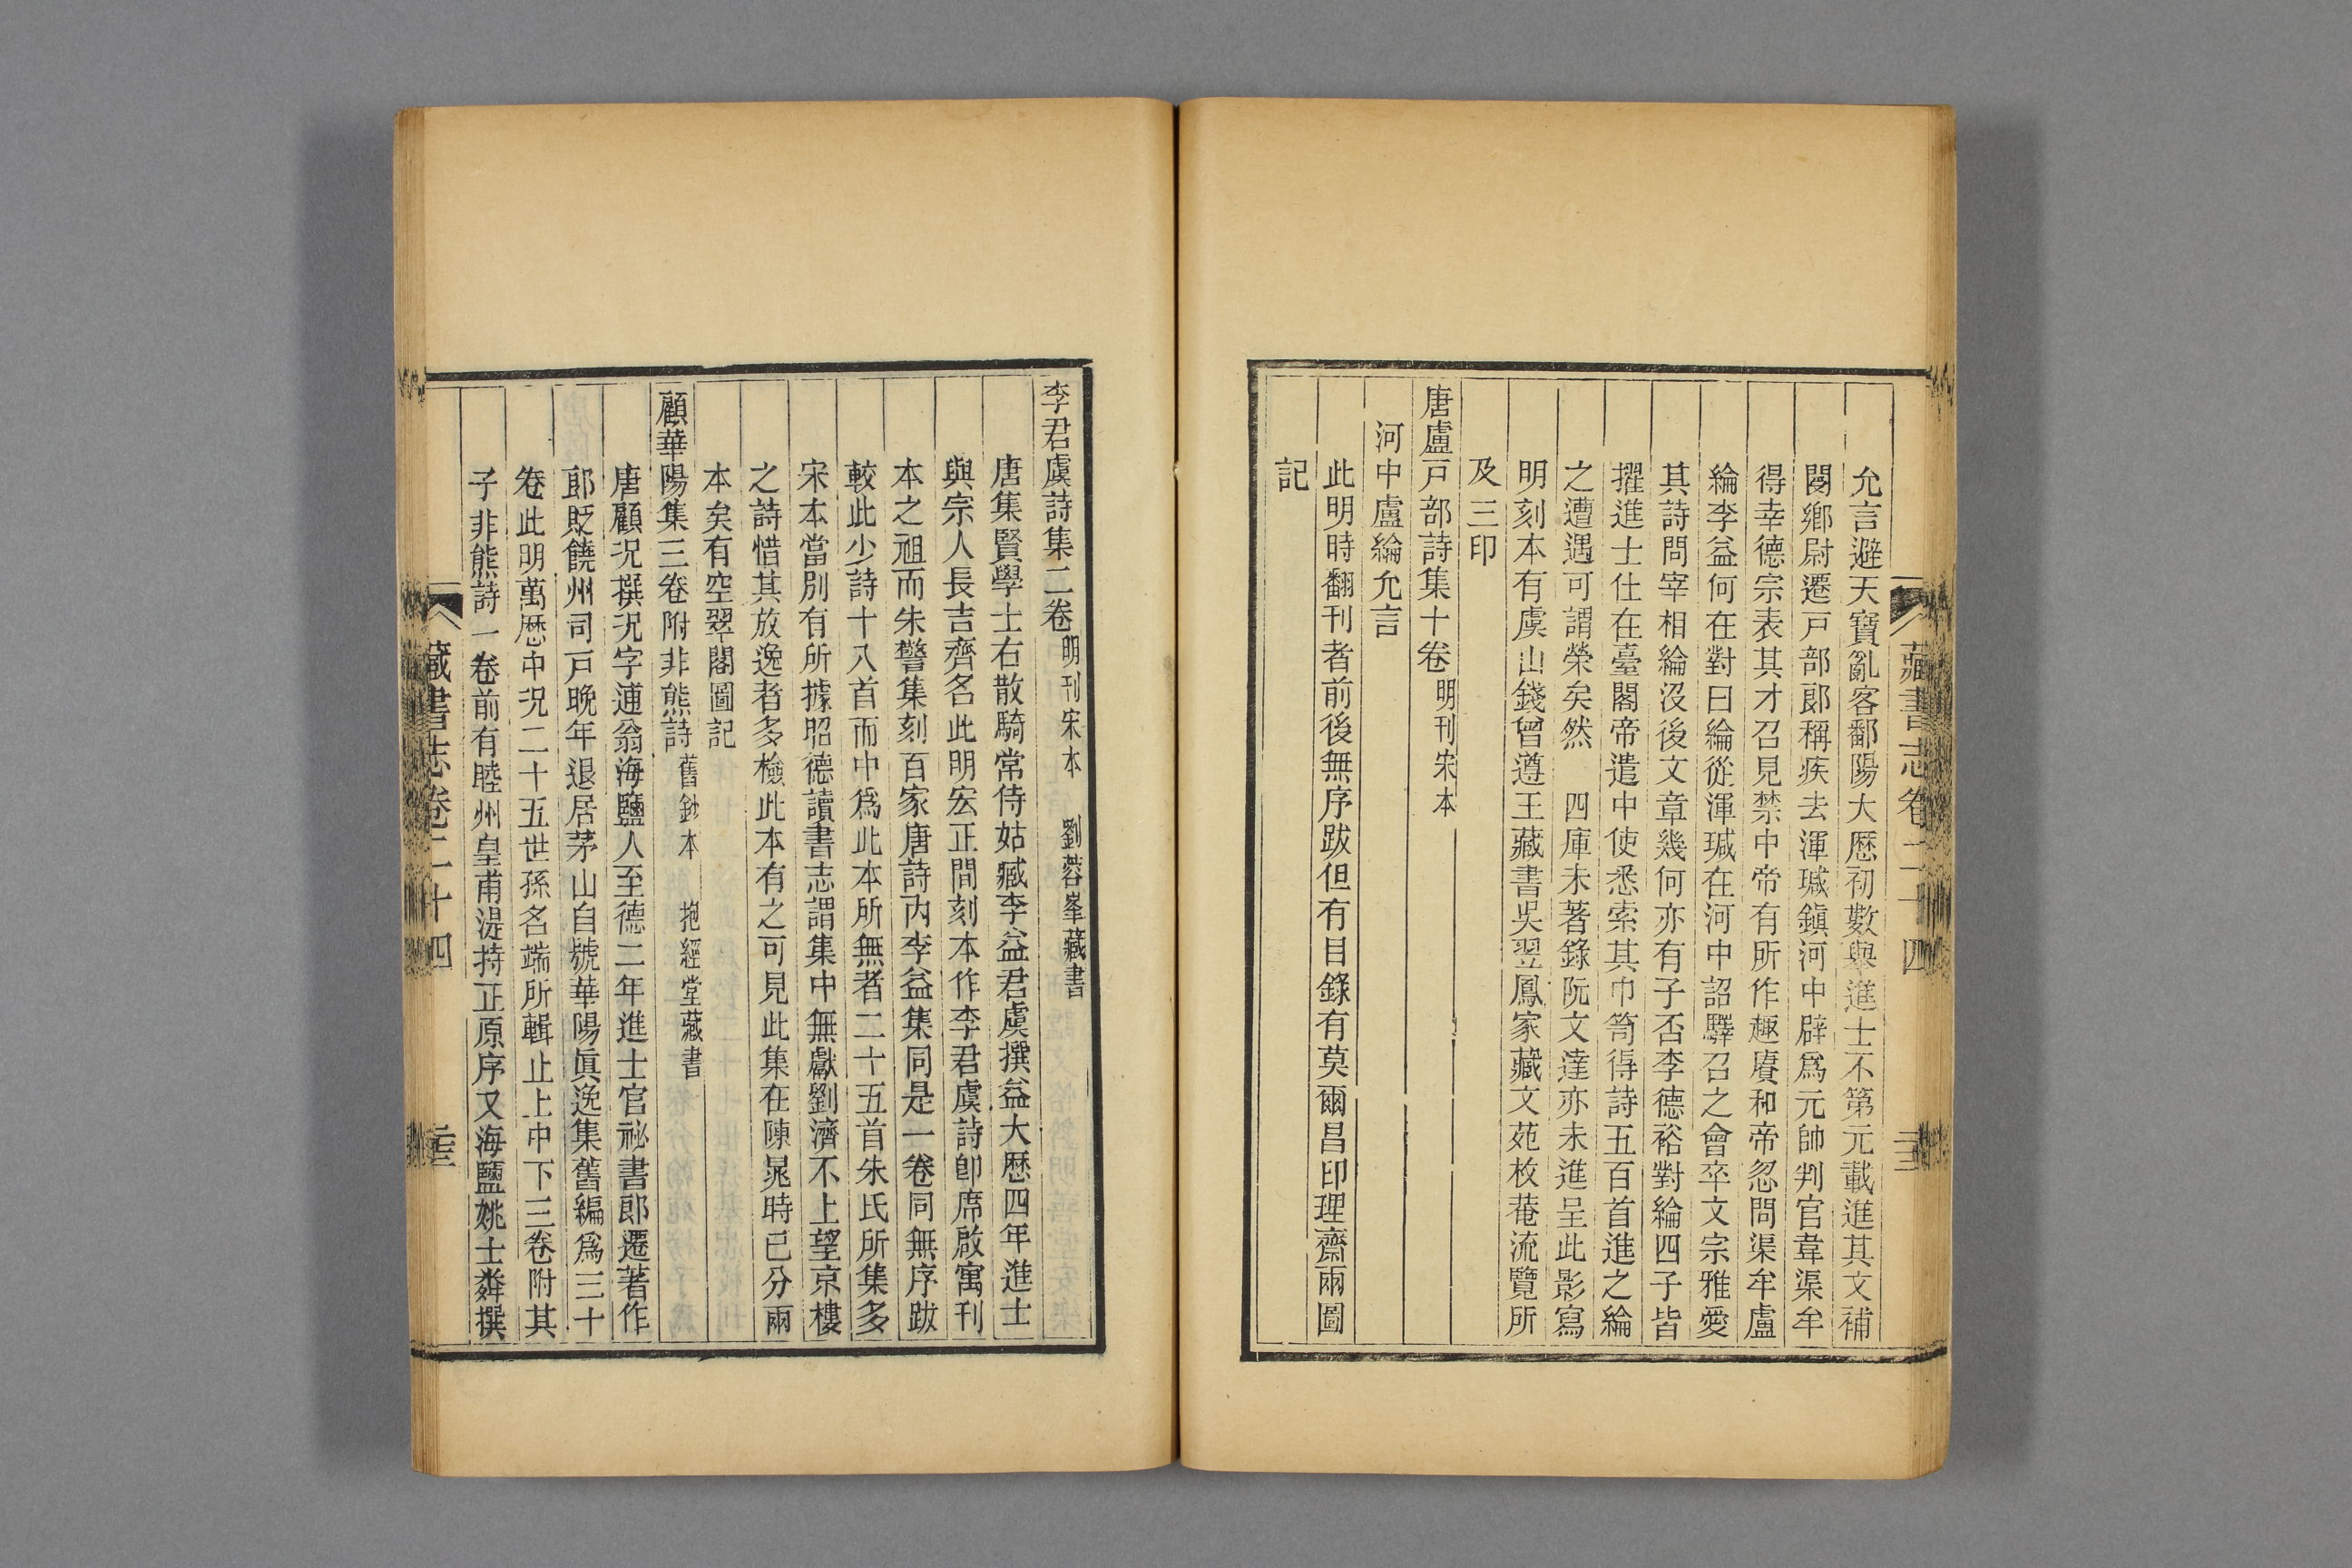 藏書志卷二十四
允言避天寶亂客鄱陽大歷初數舉進士不第元載進其文補
閿鄉尉遷戸部郞稱疾去渾瑊鎭河中辟爲元帥判官韋渠牟
得幸德宗表其才召見禁中帝有所作趣賡和帝忽問渠牟盧
綸李益何在對曰綸從渾瑊在河中詔驛召之會卒文宗雅愛
其詩問宰相綸沒後文章幾何亦有子否李德裕對綸四子皆
擢進士仕在臺閣帝遣中使悉索其巾笥得詩五百首進之綸
之遭遇可謂榮矣然　四庫未著錄阮文達亦未進呈此影寫
明刻本有虞山錢曾遵王藏書吳翌鳳家藏文苑枚菴流覽所
及三印
唐盧戸部詩集十卷明刊宋本
河中盧綸允言
此明時翻刊者前後無序跋但有目錄有莫爾昌印理齋兩圖
記
李君虞詩集二卷明刊宋本　劉蓉峯藏書
唐集賢學士右散騎常侍姑臧李益君虞撰益大歷四年進士
與宗人長吉齊名此明宏正間刻本作李君虞詩卽席啟寓刊
本之祖而朱警集刻百家唐詩內李益集同是一卷同無序跋
較此少詩十八首而中爲此本所無者二十五首朱氏所集多
宋本當別有所據昭德讀書志謂集中無獻劉濟不上望京樓
之詩惜其放逸者多檢此本有之可見此集在陳晁時已分兩
本矣有空翠閣圖記
顧華陽集三卷附非熊詩舊鈔本　抱經堂藏書
唐顧况撰况字逋翁海鹽人至德二年進士官祕書郞遷著作
郞貶饒州司戸晚年退居茅山自號華陽眞逸集舊編爲三十
卷此明萬歷中况二十五世孫名端所輯止上中下三卷附其
子非熊詩一卷前有睦州皇甫湜持正原序又海鹽姚士粦撰
藏書志卷二十四